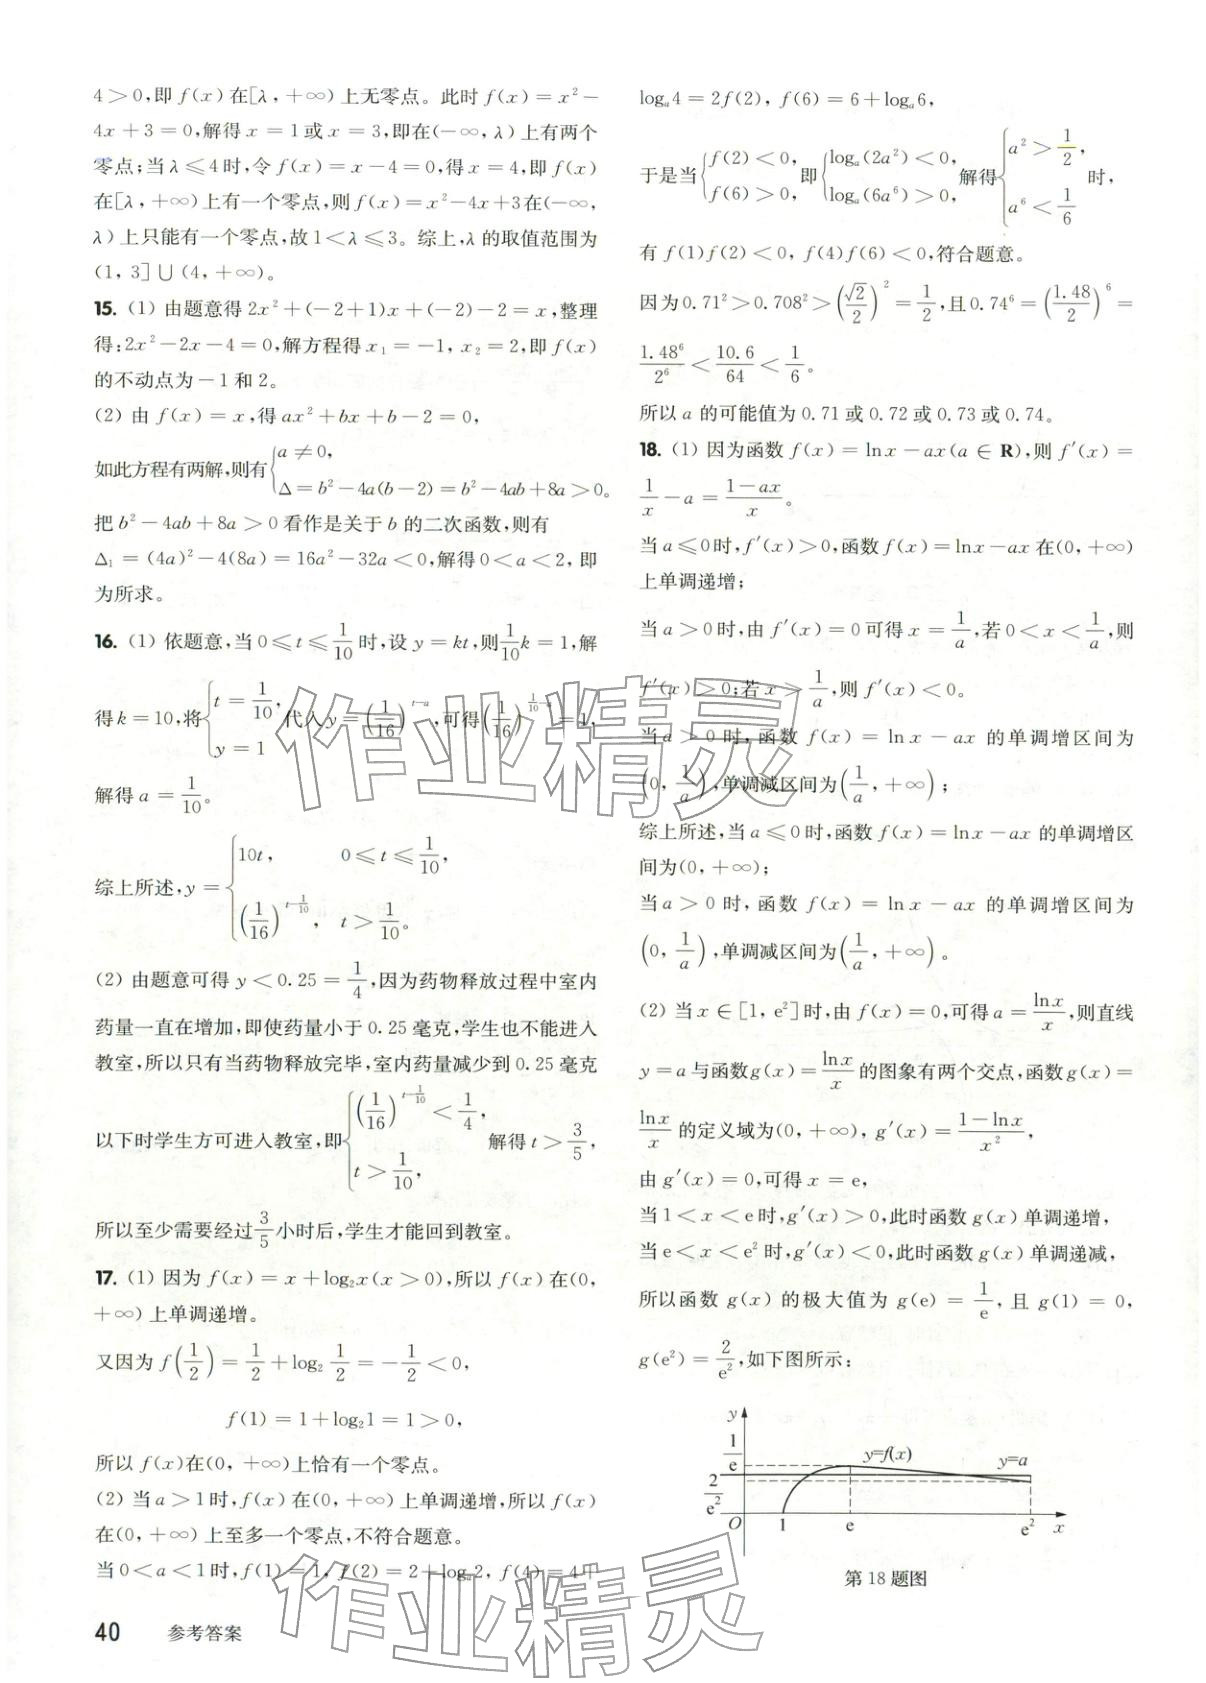 4＞0,即 f(x)在[λ, +∞)上无零点。此时 f(x)=x²−
4x+3=0,解得 x=1或 x=3,即在(−∞, λ)上有两个
零点;当 λ≤4时,令 f(x)=x−4=0,得 x=4,即 f(x)
在[λ, +∞)上有一个零点,则 f(x)=x²−4x+3在(−∞,
λ)上只能有一个零点,故 1<λ≤3。综上,λ 的取值范围为
(1, 3]∪(4, +∞)。
15. (1) 由题意得 2x²+(−2+1)x+(−2)−2=x,整理
得:2x²−2x−4=0,解方程得 x₁=−1, x₂=2,即 f(x)
的不动点为−1和2。
(2) 由 f(x)=x,得 ax²+bx+b−2=0,
如此方程有两解,则有{a≠0, Δ=b²−4a(b−2)=b²−4ab+8a>0。
把 b²−4ab+8a>0看作是关于 b 的二次函数,则有
Δ₁=(4a)²−4(8a)=16a²−32a<0,解得0<a<2,即
为所求。
16. (1) 依题意,当0≤t≤1/10时,设 y=kt,则1/10k=1,解
得k=10,将{t=1/10, y=1代入y=(1/16)^(t−a),可得(1/16)^(1/10−a)=1,
解得 a=1/10。
综上所述,y={10t, 0≤t≤1/10, (1/16)^(t−1/10), t>1/10。
(2) 由题意可得 y<0.25=1/4,因为药物释放过程中室内
药量一直在增加,即使药量小于0.25毫克,学生也不能进入
教室,所以只有当药物释放完毕,室内药量减少到0.25毫克
以下时学生方可进入教室,即{(1/16)^(t−1/10)<1/4, t>1/10, 解得 t>3/5,
所以至少需要经过3/5小时后,学生才能回到教室。
17. (1) 因为 f(x)=x+log₂x(x>0),所以 f(x)在(0,
+∞)上单调递增。
又因为 f(1/2)=1/2+log₂1/2=−1/2<0,
f(1)=1+log₂1=1>0,
所以 f(x)在(0, +∞)上恰有一个零点。
(2) 当 a>1时,f(x)在(0, +∞)上单调递增,所以 f(x)
在(0, +∞)上至多一个零点,不符合题意。
当0<a<1时,f(1)=1, f(2)=2+logₐ2, f(4)=4+
logₐ4=2f(2), f(6)=6+logₐ6,
于是当{f(2)<0, f(6)>0, 即{logₐ(2a²)<0, logₐ(6a⁶)>0, 解得{a²>1/2, a⁶<1/6 时,
有 f(1)f(2)<0, f(4)f(6)<0,符合题意。
因为0.71²>0.708²>(√2/2)²=1/2,且0.74⁶=(1.48/2)⁶=
1.48⁶/2⁶<10.6/64<1/6。
所以 a 的可能值为0.71或0.72或0.73或0.74。
18. (1) 因为函数 f(x)=lnx−ax(a∈R),则 f′(x)=
1/x−a=(1−ax)/x。
当a≤0时,f′(x)>0,函数 f(x)=lnx−ax在(0, +∞)
上单调递增;
当 a>0时,由 f′(x)=0可得 x=1/a,若0<x<1/a,则
f′(x)>0;若 x>1/a,则 f′(x)<0。
当 a>0时,函数 f(x)=lnx−ax 的单调增区间为
(0, 1/a),单调减区间为(1/a, +∞);
综上所述,当 a≤0时,函数 f(x)=lnx−ax 的单调增区
间为(0, +∞);
当 a>0时,函数 f(x)=lnx−ax 的单调增区间为
(0, 1/a),单调减区间为(1/a, +∞)。
(2) 当 x∈[1, e²]时,由 f(x)=0,可得 a=lnx/x,则直线
y=a与函数g(x)=lnx/x的图象有两个交点,函数g(x)=
lnx/x的定义域为(0, +∞), g′(x)=(1−lnx)/x²,
由 g′(x)=0,可得 x=e,
当1<x<e时,g′(x)>0,此时函数 g(x)单调递增,
当e<x<e²时,g′(x)<0,此时函数 g(x)单调递减,
所以函数 g(x)的极大值为 g(e)=1/e,且 g(1)=0,
g(e²)=2/e²,如下图所示:
y
1/e
y=f(x)
y=a
2/e²
O 1 e e² x
第18题图
40 参考答案
作业精灵
作业精灵